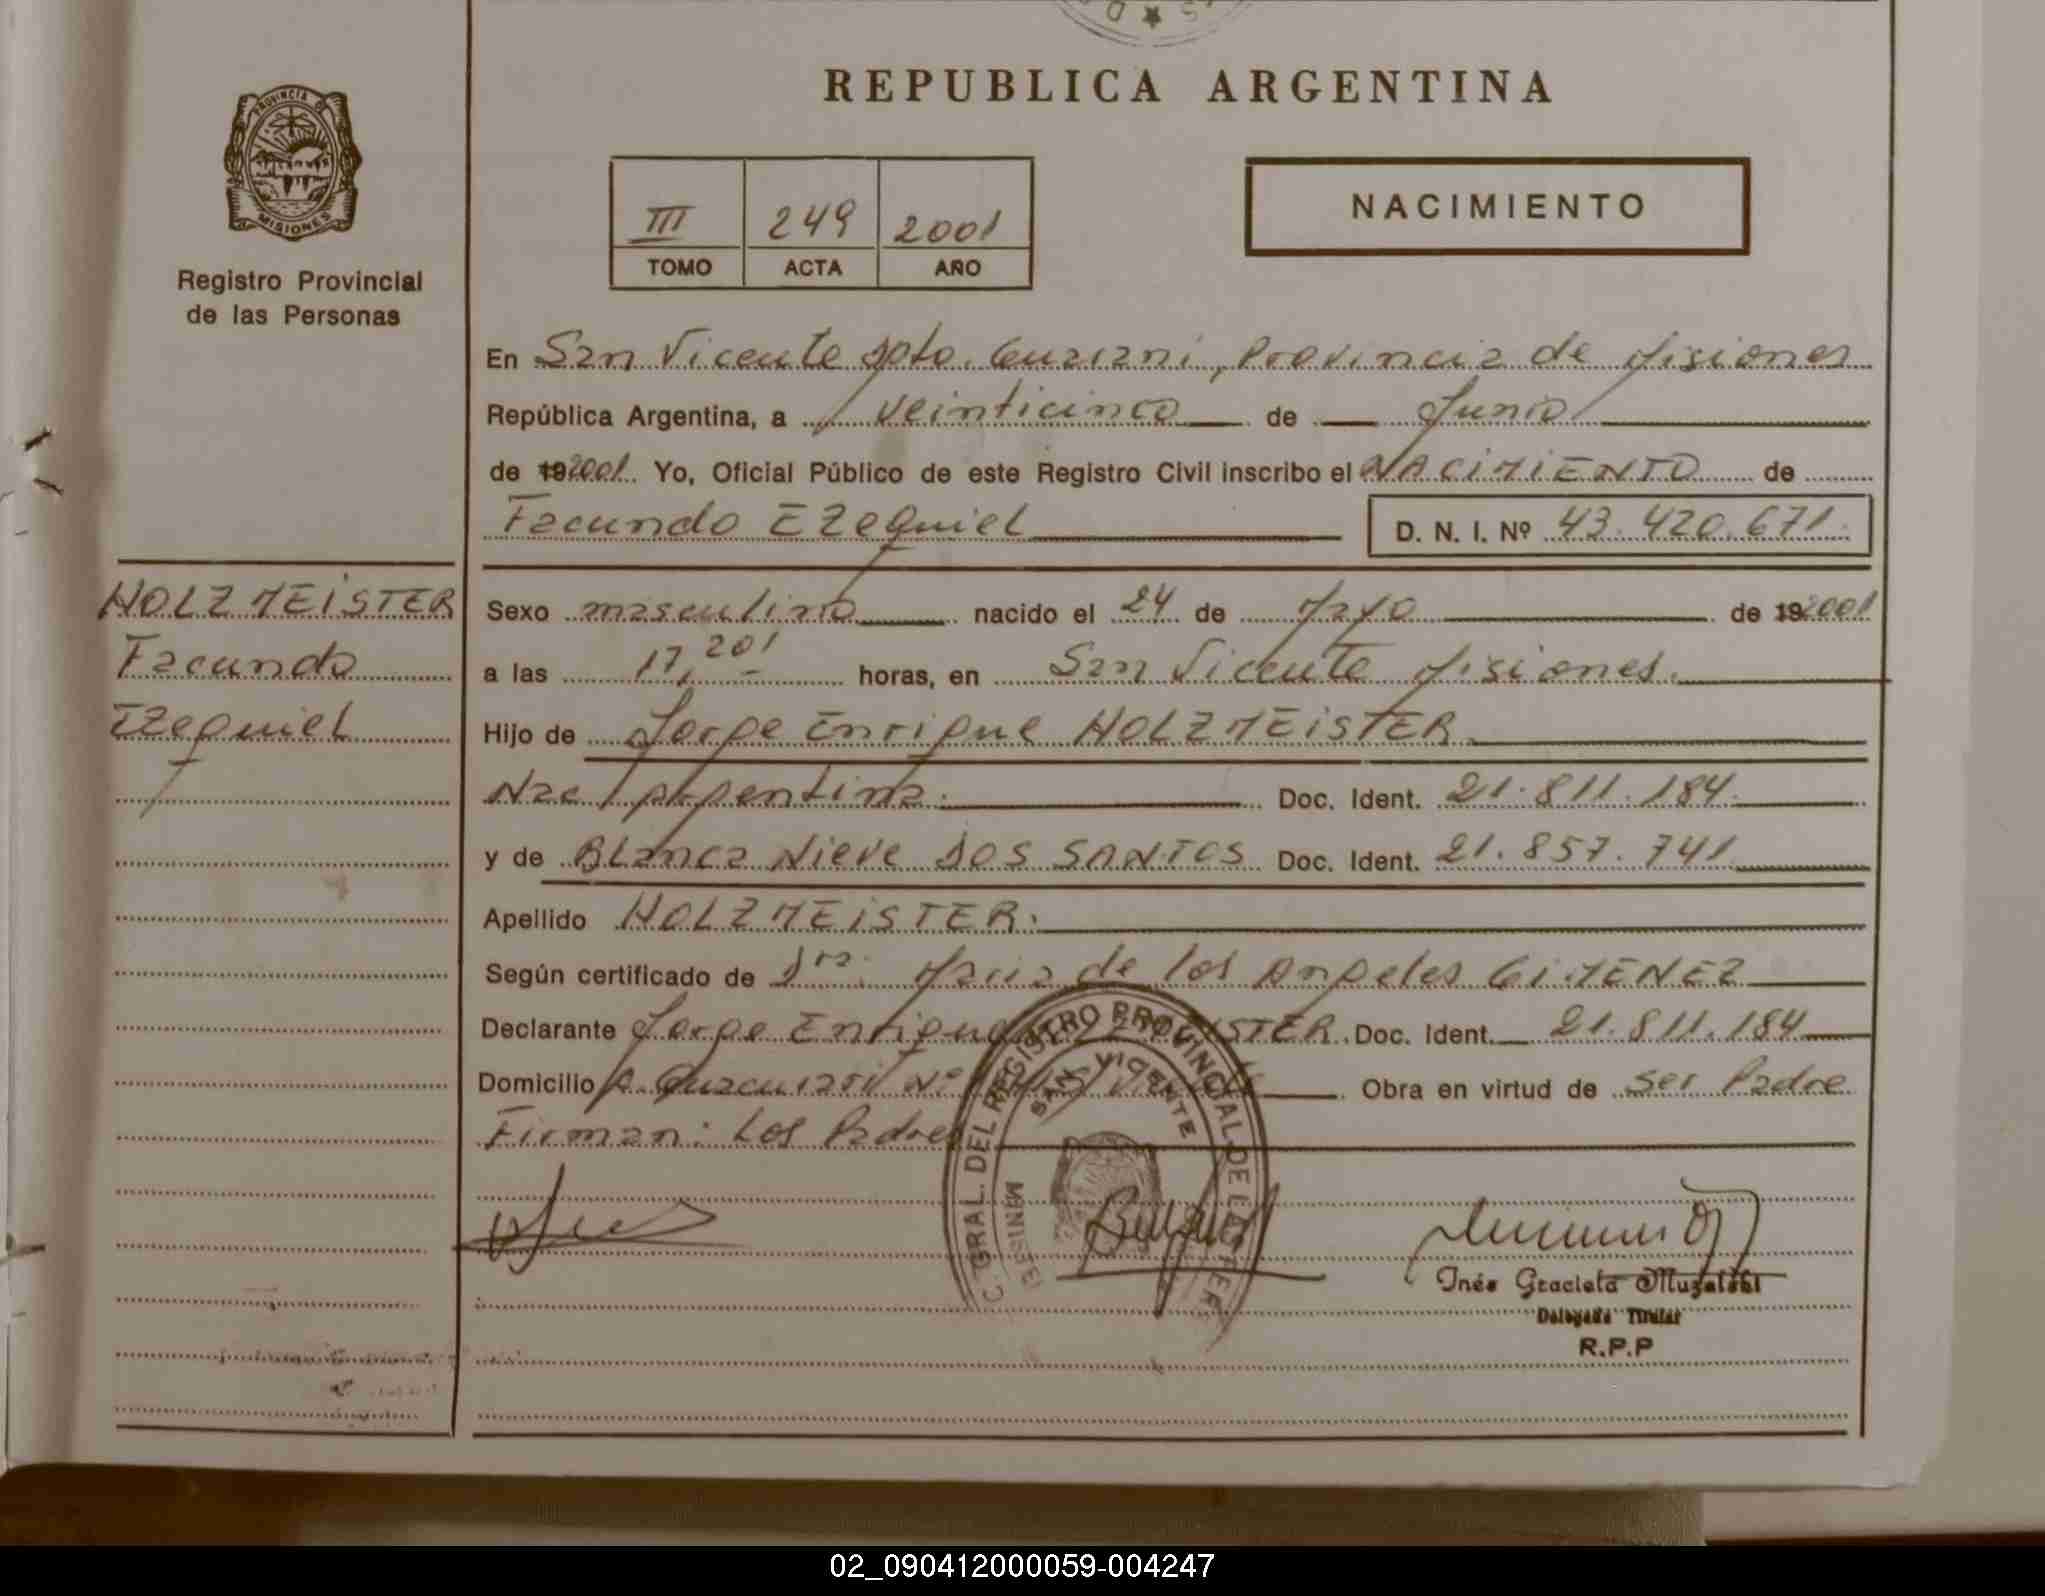 PROVINCIA D
MISIONES
Registro Provincial
de las Personas
HOLZMEISTER
Facundo
Ezequiel
REPUBLICA ARGENTINA
III 249 2001
TOMO ACTA AÑO
NACIMIENTO
En San Vicente Dpto. Guarani, Provincia de Misiones
República Argentina, a veinticinco de Junio
de 19 2001. Yo, Oficial Público de este Registro Civil inscribo el NACIMIENTO de
Facundo Ezequiel D. N. I. Nº 43.420.671.
Sexo masculino nacido el 24 de Mayo de 19 2001
a las 17,20' horas, en San Vicente Misiones.
Hijo de Jorge Enrique HOLZMEISTER.
Nac. Argentina. Doc. Ident. 21.811.184.
y de Blanca Nieve DOS SANTOS Doc. Ident. 21.857.741
Apellido HOLZMEISTER.
Según certificado de Dra. Maria de los Angeles GIMENEZ
Declarante Jorge Enrique HOLZMEISTER. Doc. Ident. 21.811.184
Domicilio Nº Obra en virtud de ser Padre
Firman: Los Padres
GRAL. DEL REGISTRO PROVINCIAL DE
SAN VICENTE
MISIONES
Inés Graciela
Delegada Titular
R.P.P
02_090412000059-004247